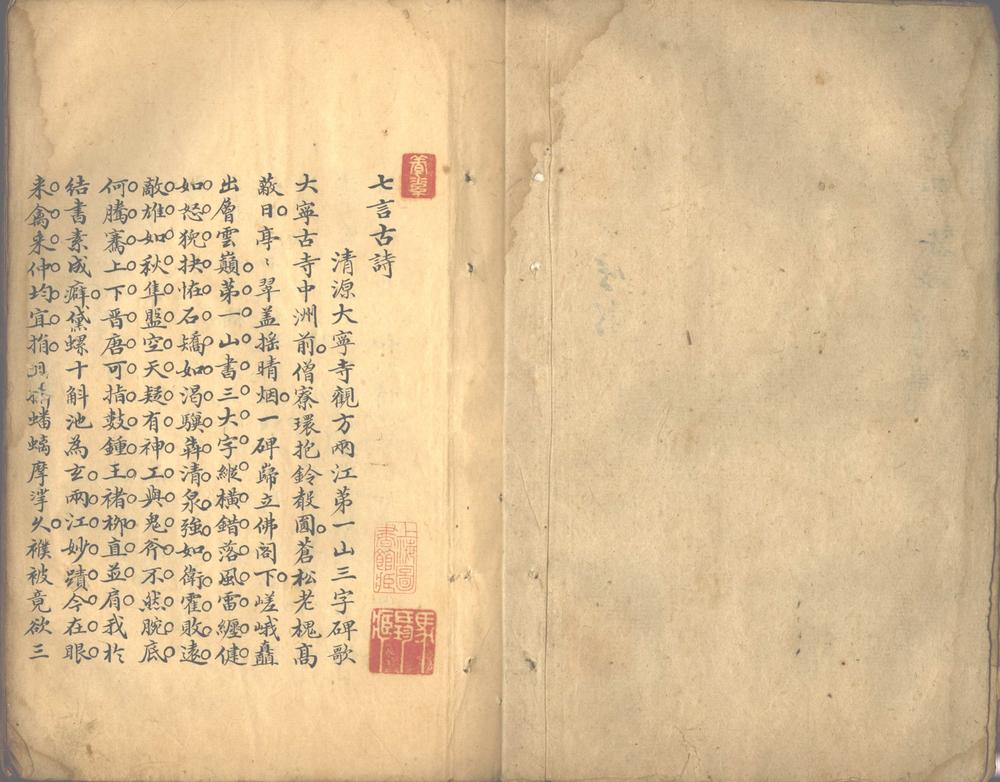 七言古詩
清源大寧寺觀方兩江第一山三字碑歌
大寧古寺中洲前僧寮環抱鈴殽圓蒼松老槐髙
蔽日亭〻翠盖揺晴烟一碑歸立佛閣下嵯峨矗
出層雲巔第一山書三大字縱横錯落風雷纏健
如怒猊抉怪石矯如渴驥奔清泉強如衛霍敗遠
敵雄如秋隼盤空天疑有神工與鬼斧不然腕底
何騰騫上下晋唐可指數鍾王褚柳直並肩我於
結書素成癖黛螺十斛池為玄兩江妙蹟今在眼
来禽来仲均宜捐蟠螭摩挲久襆被竟欲三
上海圖書館藏